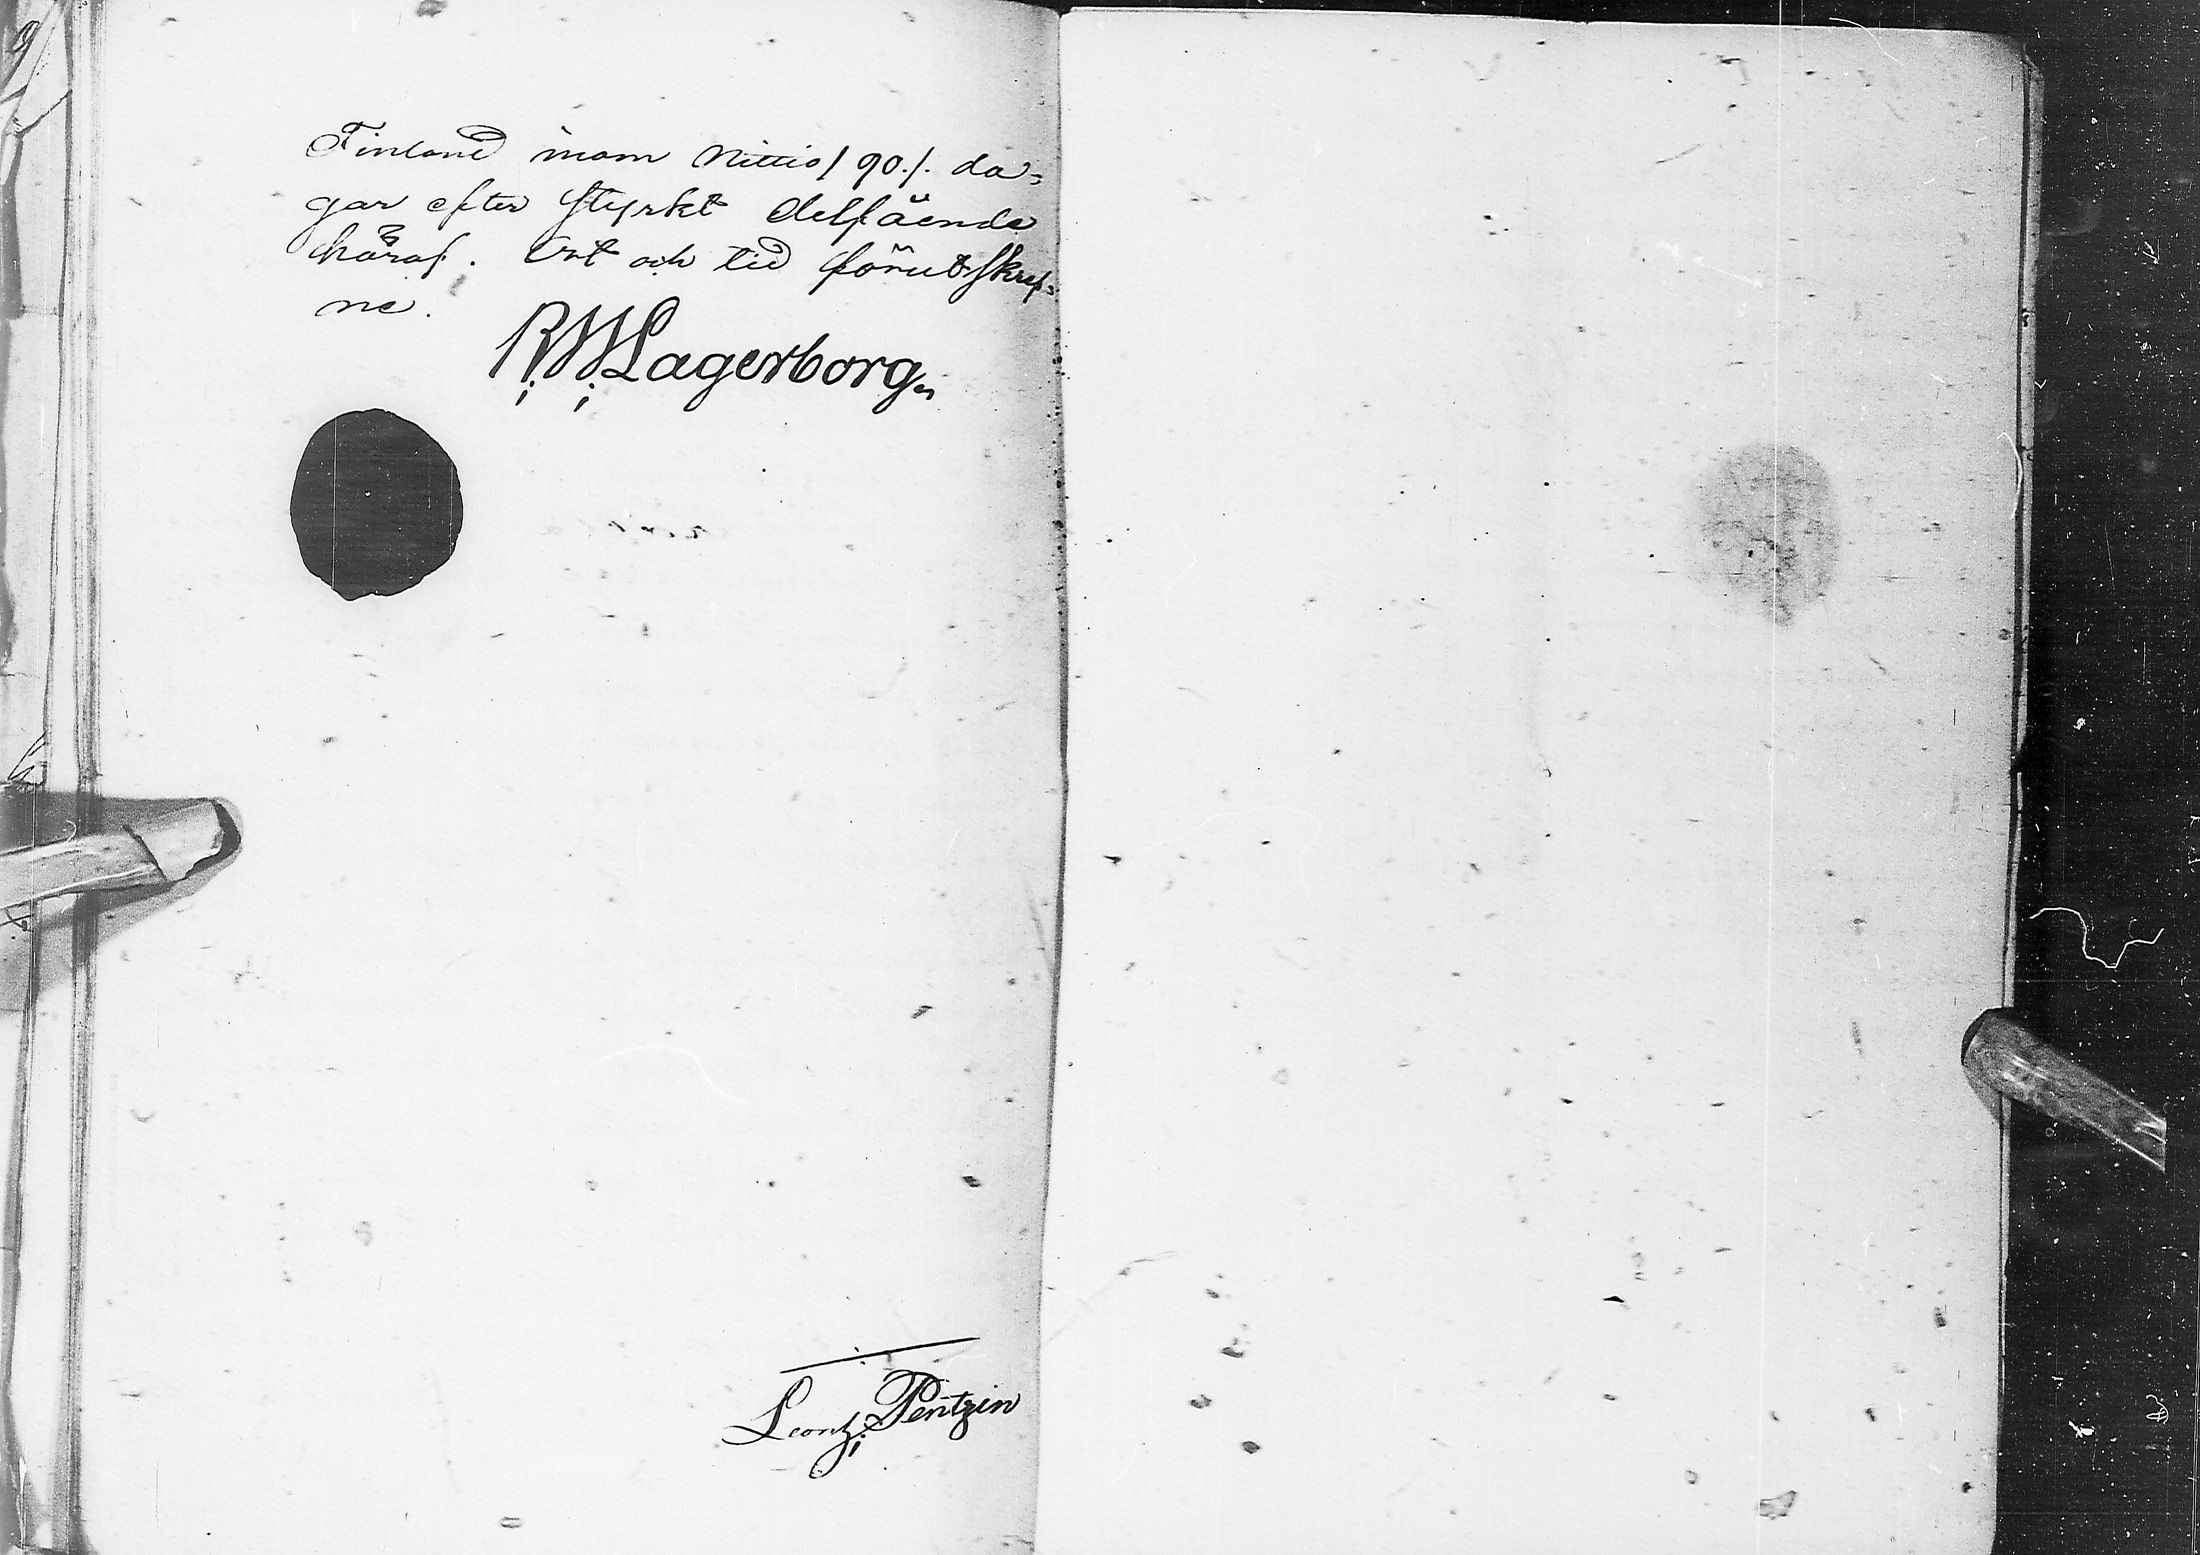 Finland inom Nittio /90./. da=
gar efter styrkt delfående
häraf. Ort och tid förutskref=
ne.
R. W. Lagerborg.
Leontj Pentzin